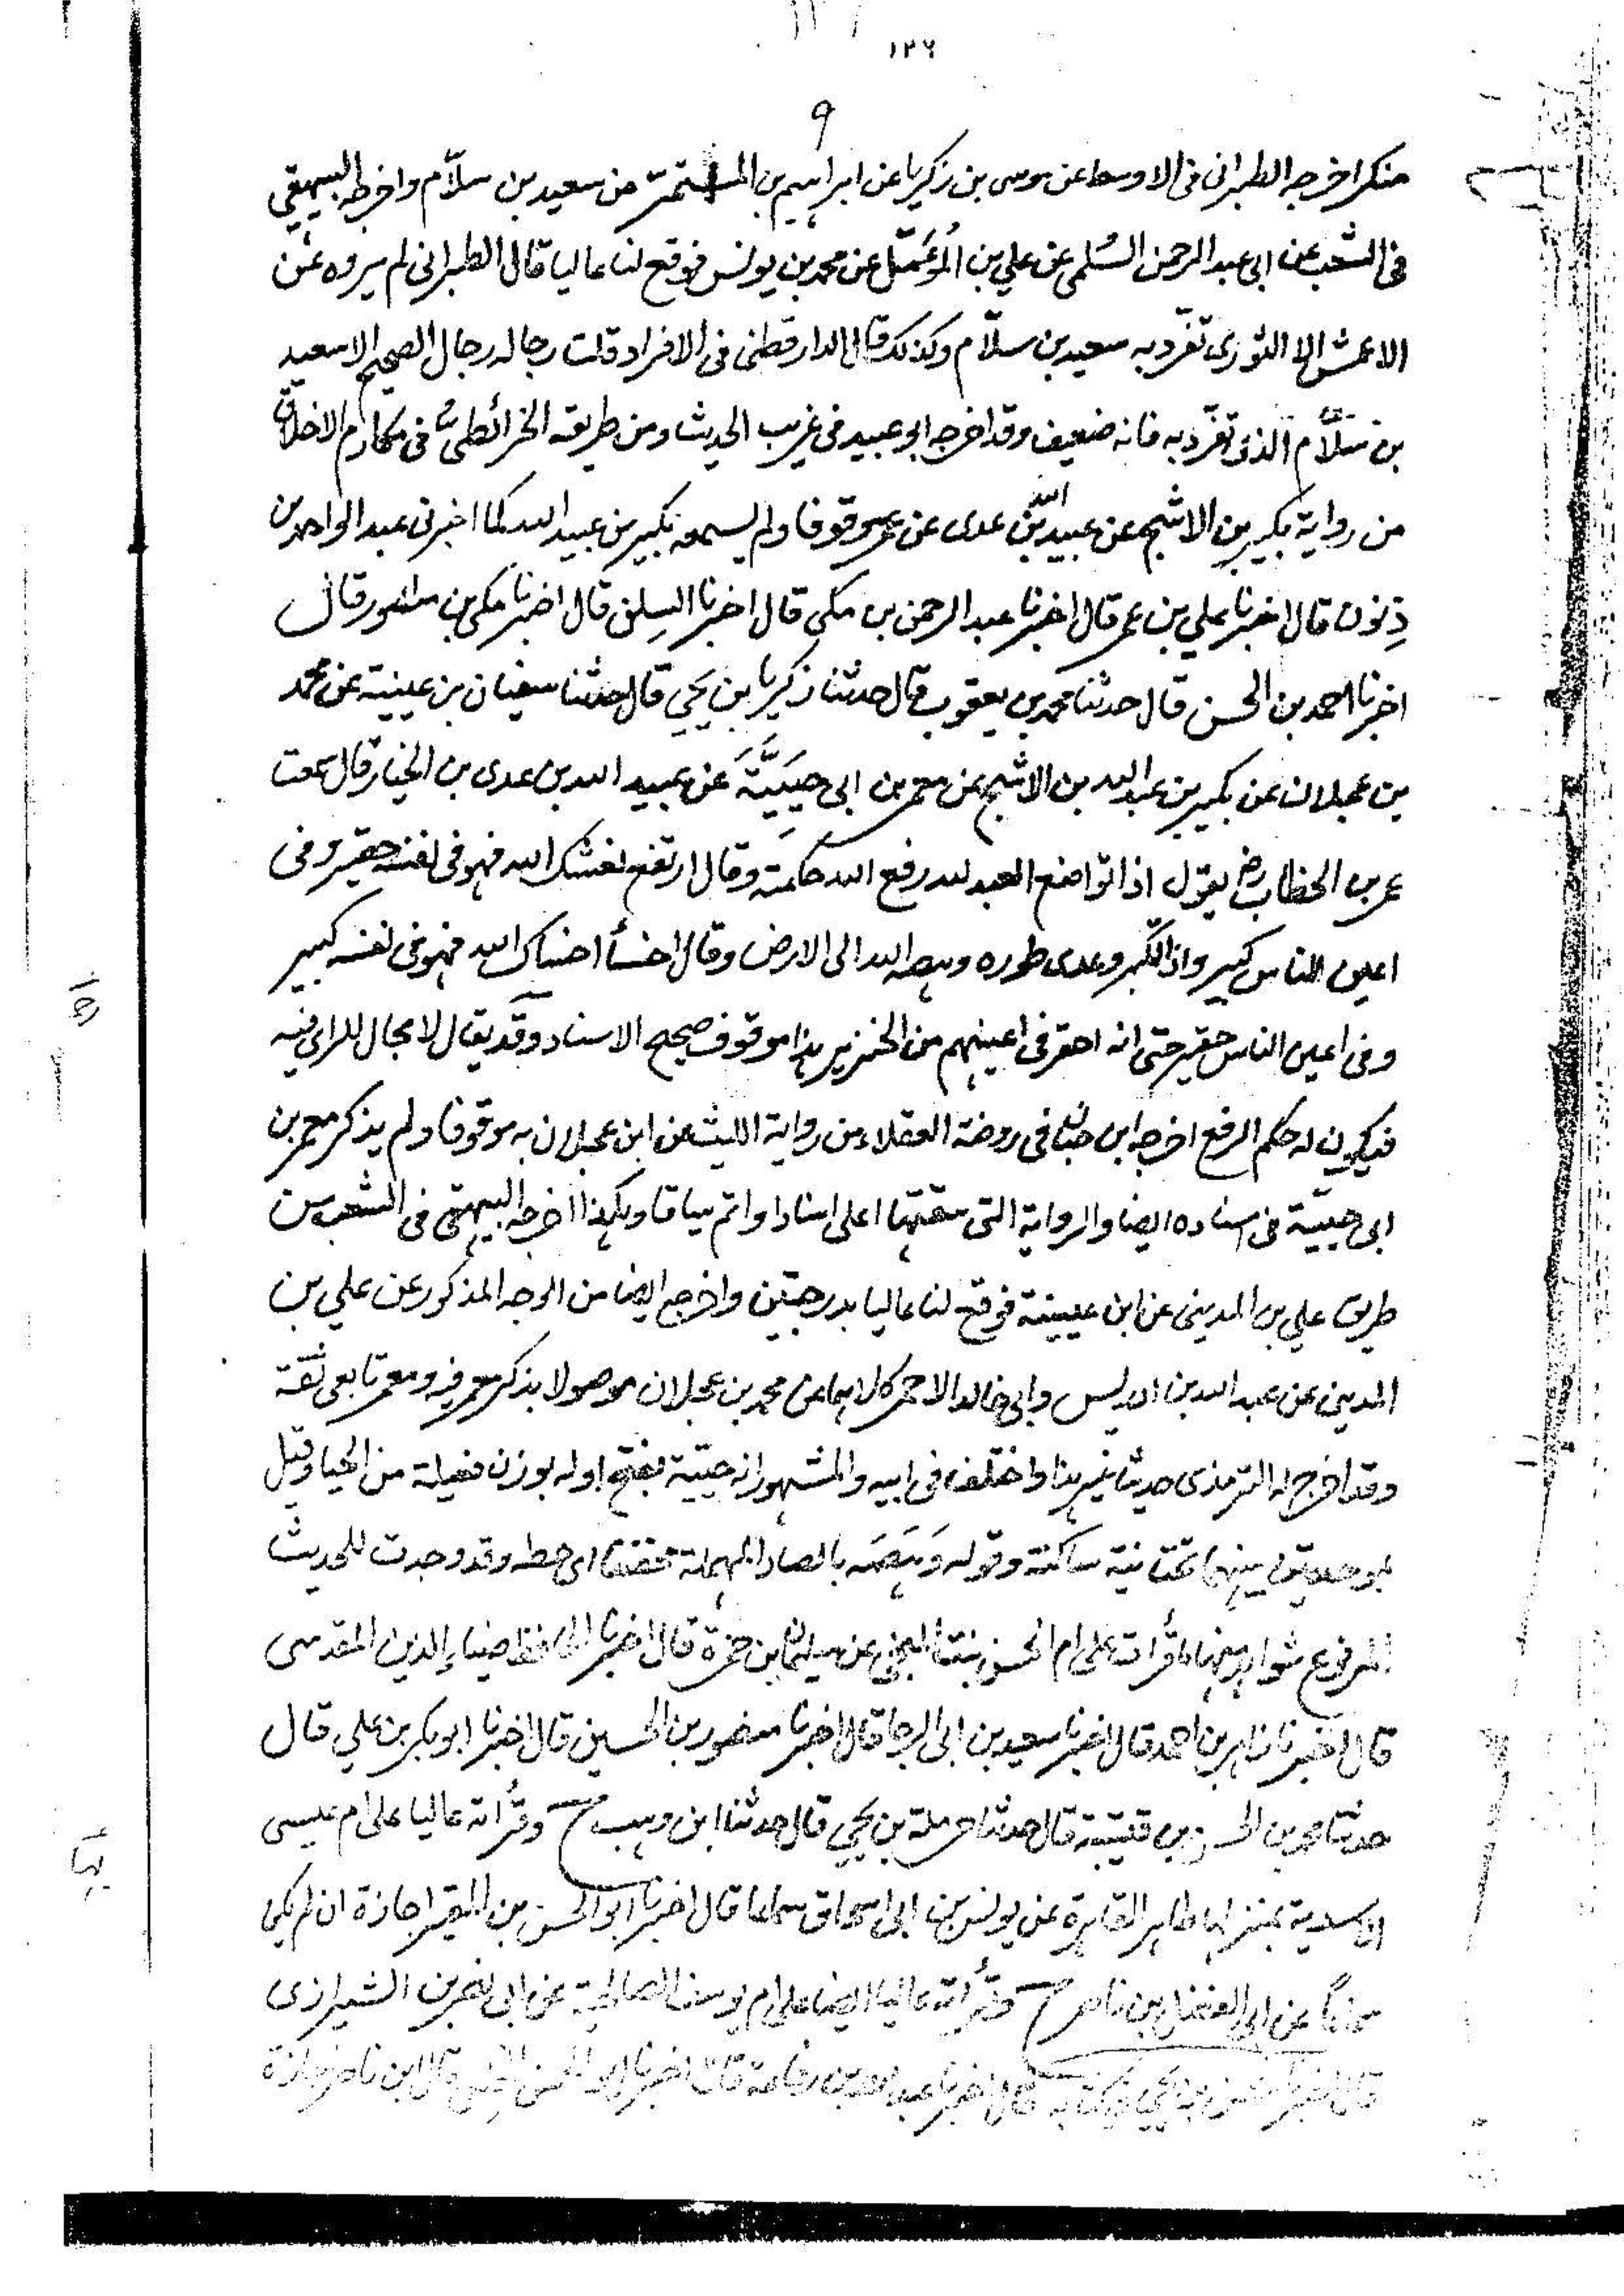 ١٢٦
٩
منكر اخرجه الطبرانى فى الاوسط عن موسى بن زكريا عن ابراهيم بن المستمر عن سعيد بن سلّام واخرجه البيهقى
فى الشعب عن ابى عبد الرحمن السُلمى عن علي بن المُؤَمّل عن محمد بن يونس فوقع لنا عاليا قال الطبرانى لم يروه عن
الاعمش الا الثورى تفرّد به سعيد بن سلّام وكذلك قال الدارقطنى فى الافراد قلت رجاله رجال الصحيح الا سعيد
بن سَلّام الذى تفرّد به فانه ضعيف وقد اخرجه ابو عبيد فى غريب الحديث ومن طريقه الخرائطى فى مكارم الاخلاق
من رواية بكير بن الاشج عن عبيد الله بن عدى عن عمر موقوفا ولم يسمعه بكير من عبيد الله كما اخبرنى عبد الواحد بن
ذِنون قال اخبرنا علي بن عمر قال اخبرنا عبد الرحمن بن مكى قال اخبرنا السِلفى قال اخبرنا مكى بن منصور قال
اخبرنا احمد بن الحسن قال حدثنا محمد بن يعقوب قال حدثنا زكريا بن يحيى قال حدثنا سفيان بن عيينة عن محمد
بن عجلان عن بكير بن عبد الله بن الاشج عن معمر بن ابى حبيبَّةَ عن عبيد الله بن عدى بن الخيار قال سمعت
عمر بن الخطاب رض يقول اذا تواضع العبد لله رفع الله حكمته وقال ارتفع نعشك الله فهو فى نفسه حقير وفى
اعين الناس كبير واذا تكبر وعدى طوره وهصه الله الى الارض وقال اخسأ اخسأك الله فهو فى نفسه كبير
وفى اعين الناس حقير حتى انه احقر فى اعينهم من الخنزير هذا موقوف صحيح الاسناد وقد يقال لا مجال للراى فيه
فيكون له حكم الرفع اخرجه ابن حبان فى روضة العقلاء من رواية الليث عن ابن عجلان به موقوفا ولم يذكر معمر بن
ابى حبيّبة فى اسناده ايضا والرواية التى سقتها اعلى اسنادا واتم سياقا وهكذا اخرجه البيهقى فى الشعب من
طريق علي بن المدينى عن ابن عيينة فوقع لنا عاليا بدرجتين واخرجه ايضا من الوجه المذكور عن علي بن
المدينى عن عبد الله بن ادريس وابى خالد الاحمر كلاهما عن محمد بن عجلان موصولا بذكر معمر فيه ومعمر تابعى ثقة
وقد اخرج له الترمذى حديثا غير هذا واختلف فى ابيه والمشهور انه حيّية بفتح اوله بوزن فعيلة من الحيا وقيل
بموحدتين بينهما تحتانية ساكنة وقوله وَهَصَه بالصاد المهملة مخففا اى حطه وقد وجدت للحديث
المرفوع شواهد منها ما قرأت على ام الحسن بنت المنجى عن سليمان بن حمزة قال اخبرنا الحافظ ضياء الدين المقدسى
قال اخبرنا زاهر بن احمد قال اخبرنا سعيد بن ابى الرجا قال اخبرنا منصور بن الحسين قال اخبرنا ابو بكر بن علي قال
حدثنا محمد بن الحسن بن قتيبة قال حدثنا حرملة بن يحيى قال حدثنا ابن وهب ح وقرأته عاليا على ام عيسى
الاسدية بمنزلها ظاهر القاهرة عن يونس بن ابى اسحاق سماعا قال اخبرنا ابو الحسن بن المقير اجازة ان لم يكن
سماعا عن ابى الفضل بن ناصر ح وقرأته عاليا ايضا على ام يوسف الصالحية عن ابى نصر بن الشيرازى
قال اخبرنا بن يحيى فى كتابه قال اخبرنا عبد الله بن رفاعة قال اخبرنا ابو الحسن الخِلَعى قال ابن ناصر اجازة